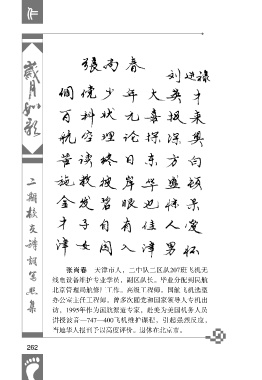 作
岁月如歌
二期校友诗词笔画集
张尚春
刘进禄
倜傥少年大英才
百科状元喜报来
航空理论探深奥
苦读终日东方向
施教授岸华盛顿
金发碧眼也惊
才子自有佳人爱
津女闯入津男怀
张尚春 天津市人，二中队二区队207班飞机无
线电设备维护专业学员，副区队长。毕业分配到民航
北京管理局航修厂工作，高级工程师。国航飞机选型
办公室主任工程师。曾多次随党和国家领导人专机出
访。1995年作为国航派遣专家，赴美为美国机务人员
讲授波音—747—400飞机维护课程，引起强烈反应，
当地华人报刊予以高度评价。退休在北京市。
262